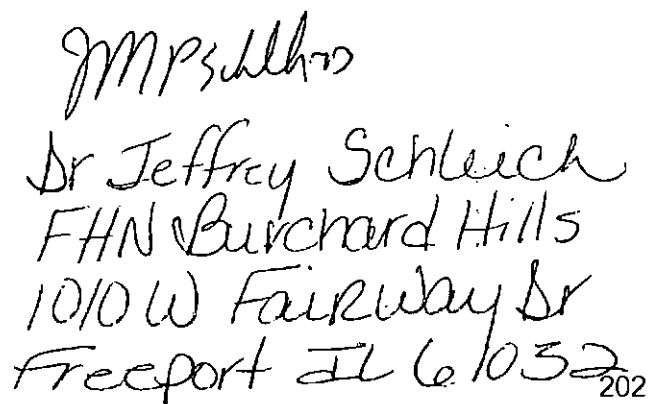 Dr Jeffrey Schleich
FHN Burchard Hills
1010 W FaiRway Dr
Freeport IL 61032
202